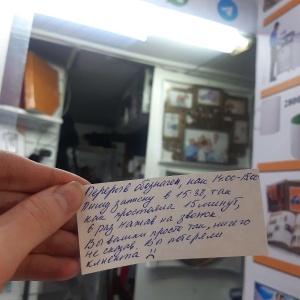 Перерыв обозначен, как 14:00-15:00
Пишу записку в 15:32, так
как простояла 15 минут,
в раз нажав на звонок
Вы вышли просто так, ничего
не сказав. Вы потеряли
клиента